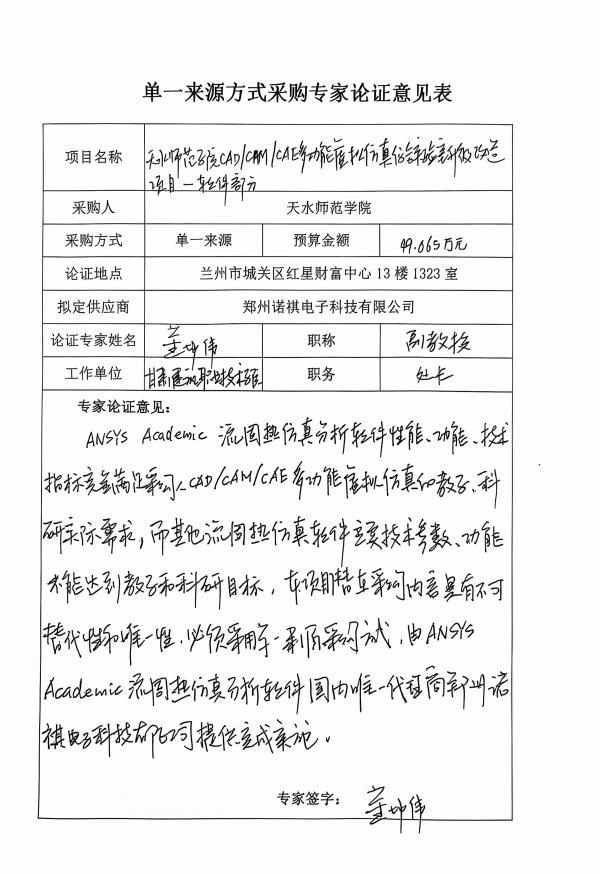 单一来源方式采购专家论证意见表
项目名称 天水师范学院CAD/CAM/CAE多功能虚拟仿真综合实验室升级改造
项目一软件部分
采购人 天水师范学院
采购方式 单一来源 预算金额 49.065万元
论证地点 兰州市城关区红星财富中心13楼1323室
拟定供应商 郑州诺祺电子科技有限公司
论证专家姓名 董坤伟 职称 副教授
工作单位 甘肃 职业技术学院 职务 处长
专家论证意见:
ANSYS Academic 流固热仿真分析软件性能、功能、技术
指标完全满足采购人CAD/CAM/CAE多功能虚拟仿真的教学、科
研实际需求,而其他流固热仿真软件主要技术参数、功能
不能达到教学和科研目标,本项目 采购内容具有不可
替代性和唯一性,必须采用单一来源采购方式,由ANSYS
Academic 流固热仿真分析软件国内唯一代理商郑州诺
祺电子科技有限公司提供
专家签字: 董坤伟